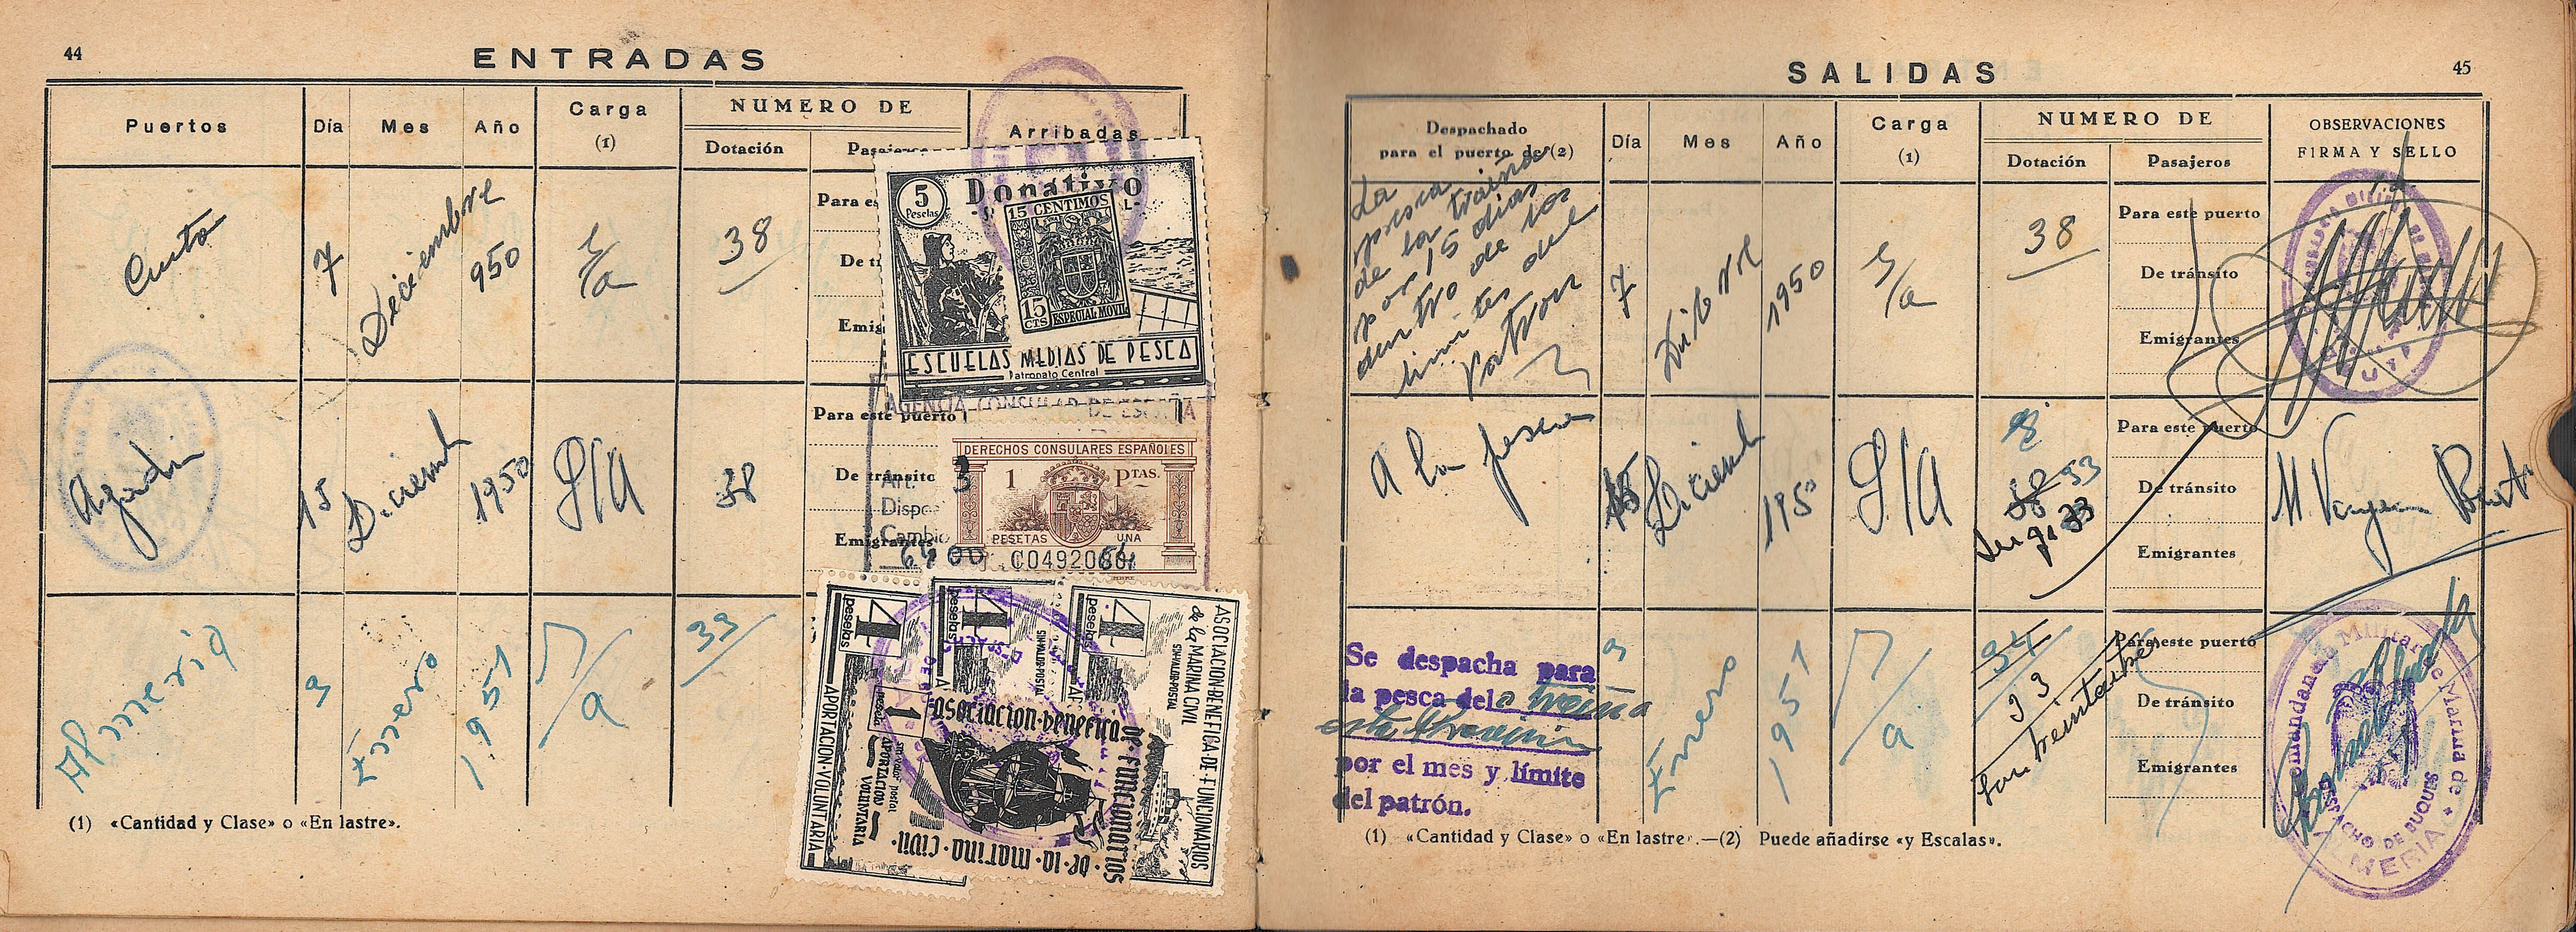 44
ENTRADAS
Puertos Día Mes Año Carga (1) NUMERO DE Arribadas
Dotación Pasajeros
Ceuta 7 Deciembre 950 S/a 38
Para es
De t
Emig
5 Pesetas Donativo
15 CENTIMOS
15 CTS ESPECIAL MOVIL
ESCUELAS MEDIAS DE PESCA
Patronato Central
AGENCIA CONSULAR DE ESPAÑA
Agadir 15 Diciemb 1950 S/A 38
Para este puerto
De tránsito
Emigrantes
Art. 3
Dispo
Cambio
DERECHOS CONSULARES ESPAÑOLES
1 PTAS.
PESETAS UNA
Almeria 3 Enero 1951 S/a 33
4 pesetas
4 pesetas
4 pesetas
SIN VALOR POSTAL
SIN VALOR POSTAL
ASOCIACION BENEFICA DE FUNCIONARIOS
de la MARINA CIVIL
APORTACION VOLUNTARIA
1 peseta
sin valor postal
APORTACION VOLUNTARIA
asociacion benefica de funcionarios de la marina civil
(1) «Cantidad y Clase» o «En lastre».
SALIDAS
45
Despachado para el puerto de (2) Día Mes Año Carga (1) NUMERO DE OBSERVACIONES FIRMA Y SELLO
Dotación Pasajeros
La
pesca
de la traiña
por 15 dias
dentro de los
limites del
Patron
7 Dicbre 1950 S/a 38
Para este puerto
De tránsito
Emigrantes
A la pesca 15 Diciemb 195 S/A 38 33
Son 33
Para este puerto
De tránsito
Emigrantes
Se despacha para
la pesca del a traiña
por el mes y límite
del patrón.
3 Enero 1951 S/a 34
33
Son treintaitres
Para este puerto
De tránsito
Emigrantes
Comandancia Militar de Marina de
DESPACHO DE BUQUES
ALMERIA
(1) «Cantidad y Clase» o «En lastre».—(2) Puede añadirse «y Escalas».